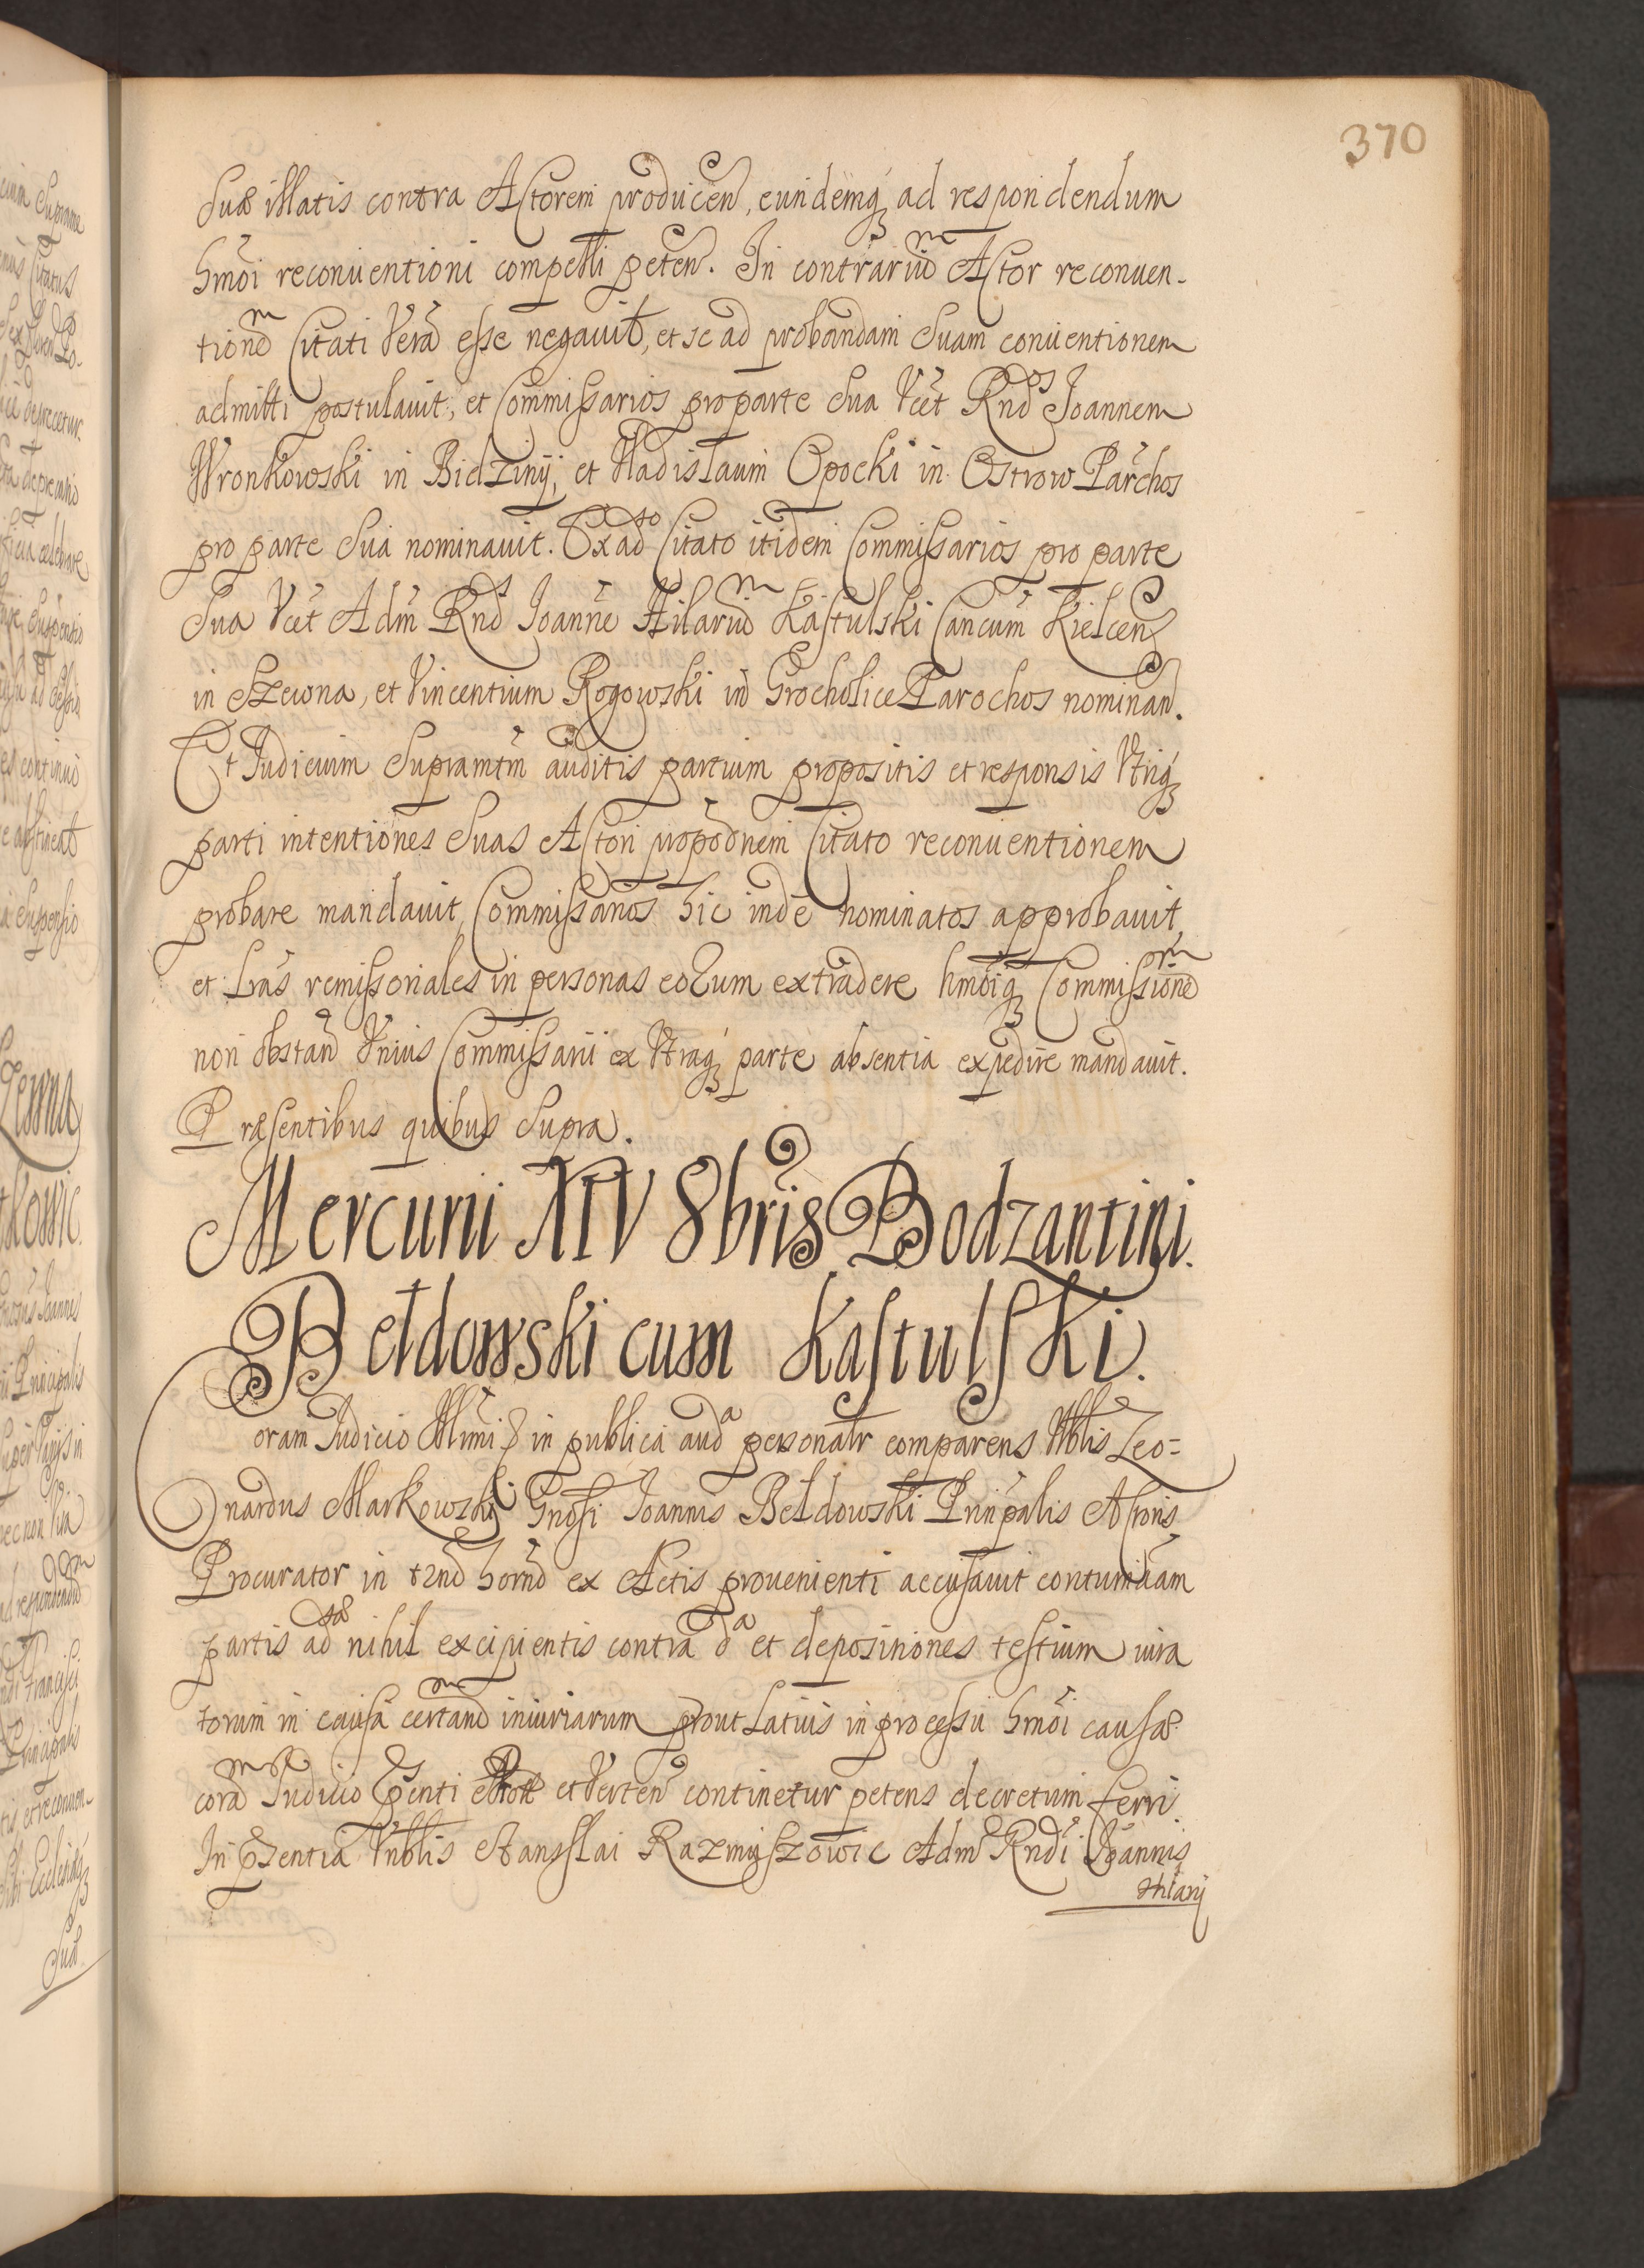 370
Suæ illatis contra Actorem producen, eundemq ad respondendum
hmoi reconventioni compelli peten. In contrarium Actor reconven-
tionem Citati Vera esse negavit, et se ad probandam Suam conventionem
admitti postulavit, et Commissarios pro parte Sua Vcet Rndos Joannem
Wronkowski in Bidziny, et Vladislaum Opocki in Ostrow Parchos
pro parte Sua nominavit. Ex adso Citato itidem Commissarios pro parte
Sua Vcet Adm Rnds Joanne Hilarium Kastulski Cancum Kielcen
in Szewna, et Vincentium Rogowski in Grocholice Parochos nominan.
Et Judicium Supramtm auditis partium propositis et responsis Vtriq
parti intentiones Suas Actori propoonem Citato reconventionem
probare mandavit, Commissarios hic inde nominatos approbavit,
et Lras remissoriales in personas eorum extradere hmoiq Commissionem
non obstan Vnius Commissarii ex Vtraq parte absentia expedire mandavit.
Præsentibus quibus Supra.
Mercurii XIV 8bris Bodzantini.
Bełdowski cum Kastulski.
Coram Judicio Illmi in publica auda personalr comparens Nblis Leo=
nardus Markowski Gnosi Joannis Bełdowski Prinpalis Actoris
Procurator in tmno horno ex Actis provenienti accusavit contumaam
partis adsæ nihil excipientis contra da et depositiones testium iura
torum in causa certand iniuriarum prout Latius in processu hmoi causæ
coram Judicio pnti et Verten continetur petens decretum ferri.
In pzentia Nblis Stanislai Razmyszowic Adm Rndi Joannis
Hilarii